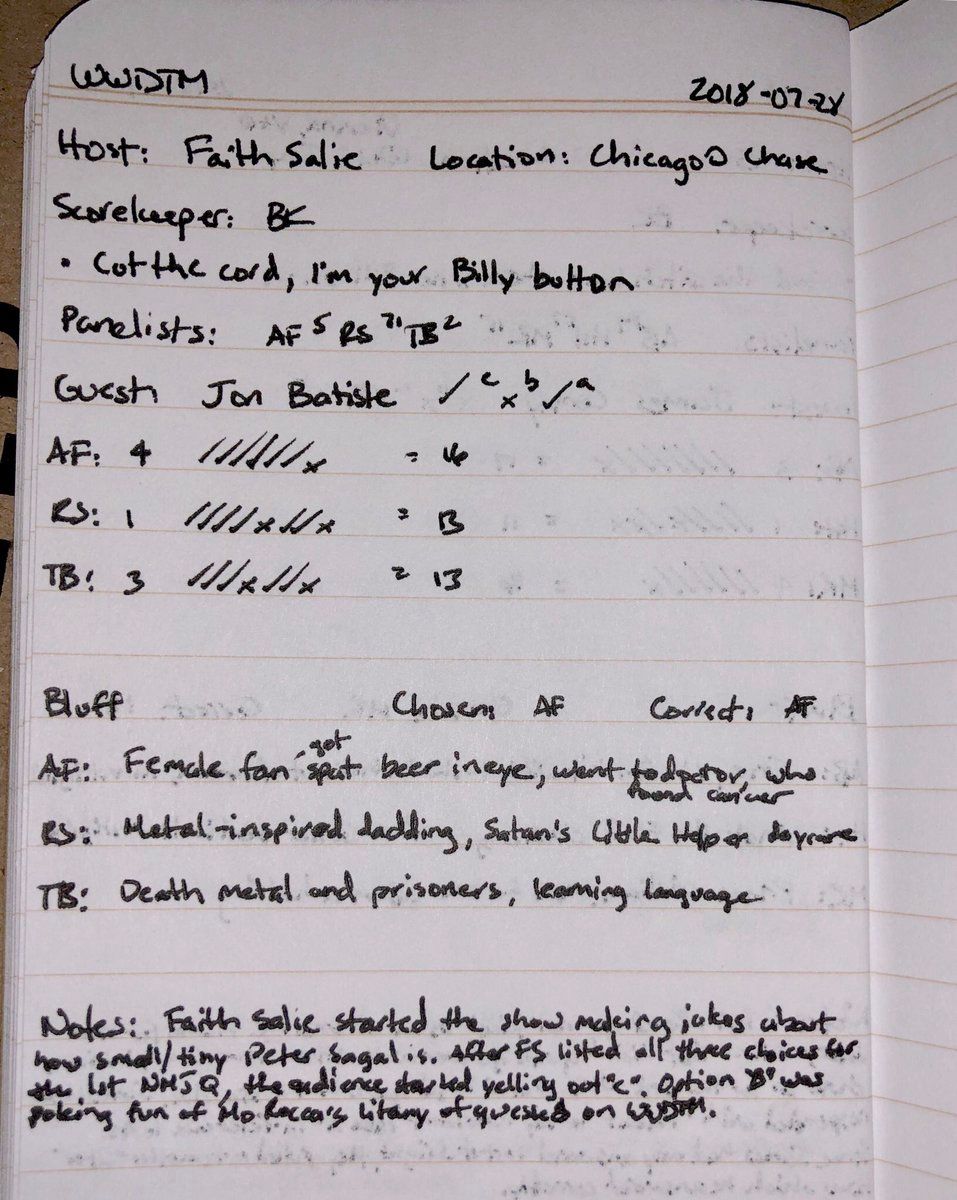 WWDTM 2018-07-28
Host: Faith Salie Location: Chicago Chase
Scorekeeper: BK
• Cut the cord, I'm your Billy button
Panelists: AF 5 RS 71 TB 2
Guest: Jon Batiste ✓ c x b ✓ a
AF: 4 //////x = 16
RS: 1 ////x//x = 13
TB: 3 ///x//x = 13
Bluff Chosen: AF Correct: AF
AF: Female fan got spat beer in eye, went to doctor, who
found cancer
RS: Metal-inspired dadding, Satan's Little Helper daycare
TB: Death metal and prisoners, learning language
Notes: Faith Salie started the show making jokes about
how small/tiny Peter Sagal is. After FS listed all three choices for
the 1st NMJQ, the audience started yelling out "c". Option "B" was
poking fun of Mo Rocca's litany of on WWDTM.